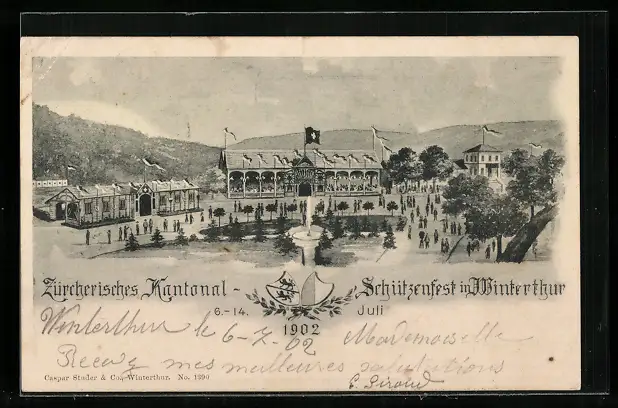 Zürcherisches Kantonal - Schützenfest in Winterthur
6.-14. Juli
1902
Winterthur le 6-7. 02 Mademoiselle
Recevez mes meilleures salutations
Caspar Studer & Co., Winterthur. No. 1390